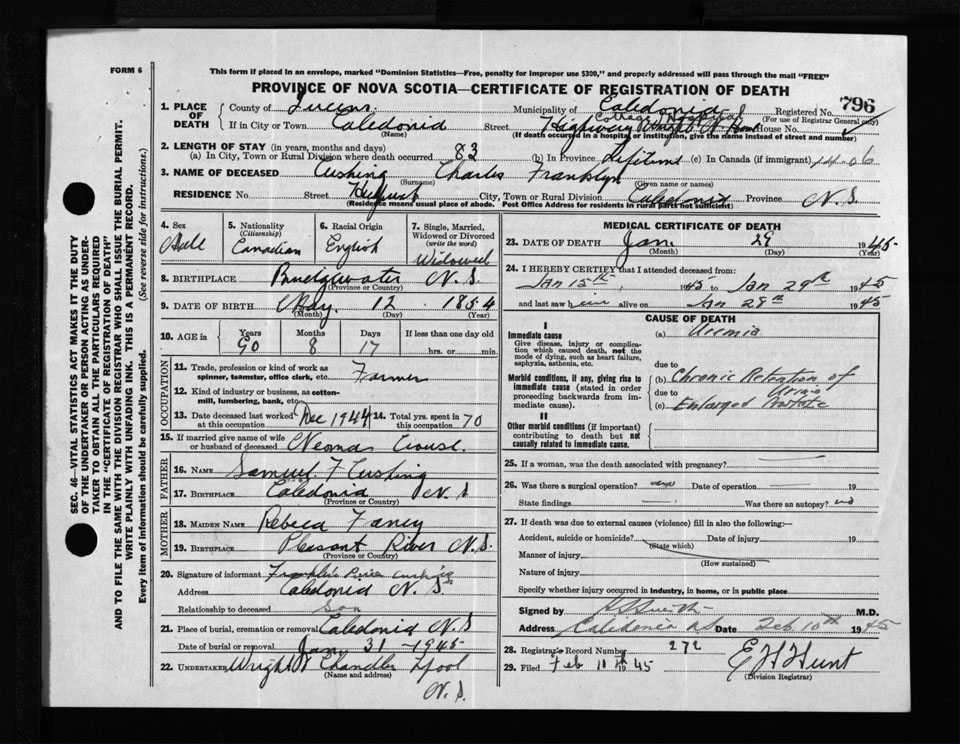 FORM 6
This form if placed in an envelope, marked "Dominion Statistics—Free, penalty for improper use $300," and properly addressed will pass through the mail "FREE"
PROVINCE OF NOVA SCOTIA—CERTIFICATE OF REGISTRATION OF DEATH
1. PLACE OF DEATH
County of Queens Municipality of Caledonia Registered No. 796
(Name) (For use of Registrar General only)
Cottage Hospital
If in City or Town Caledonia Street Highway House No.
(If death occurred in a hospital or institution, give the name instead of street and number)
2. LENGTH OF STAY (in years, months and days)
(a) In City, Town or Rural Division where death occurred 82 (b) In Province Lifetime (c) In Canada (if immigrant)
3. NAME OF DECEASED Cushing Charles Franklyn
(Surname) (Given name or names)
RESIDENCE No. Street City, Town or Rural Division Caledonia Province N.S.
(Residence means usual place of abode. Post Office Address for residents in rural parts not sufficient)
4. Sex Male
5. Nationality (Citizenship) Canadian
6. Racial Origin English
7. Single, Married, Widowed or Divorced (write the word) Widowed
8. BIRTHPLACE Bridgewater N.S.
(Province or Country)
9. DATE OF BIRTH May 12 1854
(Month) (Day) (Year)
10. AGE in Years 90 Months 8 Days 17 If less than one day old hrs. or min.
OCCUPATION
11. Trade, profession or kind of work as spinner, teamster, office clerk, etc. Farmer
12. Kind of industry or business, as cotton-mill, lumbering, bank, etc.
13. Date deceased last worked at this occupation Dec 1944 14. Total yrs. spent in 70
15. If married give name of wife or husband of deceased Crouse
FATHER
16. NAME Samuel F Cushing
17. BIRTHPLACE Caledonia N.S.
(Province or Country)
MOTHER
18. MAIDEN NAME Rebeca Fancy
19. BIRTHPLACE Pleasant River N.S.
(Province or Country)
20. Signature of informant Franklin Cushing
Address Caledonia N.S.
Relationship to deceased Son
21. Place of burial, cremation or removal Caledonia N.S
Date of burial or removal Jany 31 -1945
22. UNDERTAKER Wright V Chandler Lpool
(Name and address)
N.S.
MEDICAL CERTIFICATE OF DEATH
23. DATE OF DEATH Jan 29 1945
(Month) (Day) (Year)
24. I HEREBY CERTIFY that I attended deceased from:
Jan 15th 1945 to Jan 29th 1945
and last saw him alive on Jan 28th 1945
CAUSE OF DEATH
I
Immediate cause (a) Uremia
Give disease, injury or complication which caused death, not the mode of dying, such as heart failure, asphyxia, asthenia, etc.
due to
Morbid conditions, if any, giving rise to immediate cause (stated in order proceeding backwards from immediate cause).
(b) Chronic Retention of Urine
due to
(c) Enlarged Prostate
II
Other morbid conditions (if important) contributing to death but not causally related to immediate cause.
25. If a woman, was the death associated with pregnancy?
26. Was there a surgical operation? no Date of operation 19
State findings Was there an autopsy? no
27. If death was due to external causes (violence) fill in also the following:—
Accident, suicide or homicide? Date of injury 19
(State which)
Manner of injury
(How sustained)
Nature of injury
Specify whether injury occurred in industry, in home, or in public place
Signed by M.D.
Address Caledonia NS Date Feb 10th 1945
28. Registrar's Record Number 272
29. Filed Feb 10th 1945 E H Hunt
(Division Registrar)
SEC. 46—VITAL STATISTICS ACT MAKES IT THE DUTY
OF THE UNDERTAKER OR PERSON ACTING AS UNDER-
TAKER TO OBTAIN ALL THE PARTICULARS REQUIRED
IN THE "CERTIFICATE OF REGISTRATION OF DEATH"
AND TO FILE THE SAME WITH THE DIVISION REGISTRAR WHO SHALL ISSUE THE BURIAL PERMIT.
WRITE PLAINLY WITH UNFADING INK. THIS IS A PERMANENT RECORD.
Every item of information should be carefully supplied. (See reverse side for instructions.)